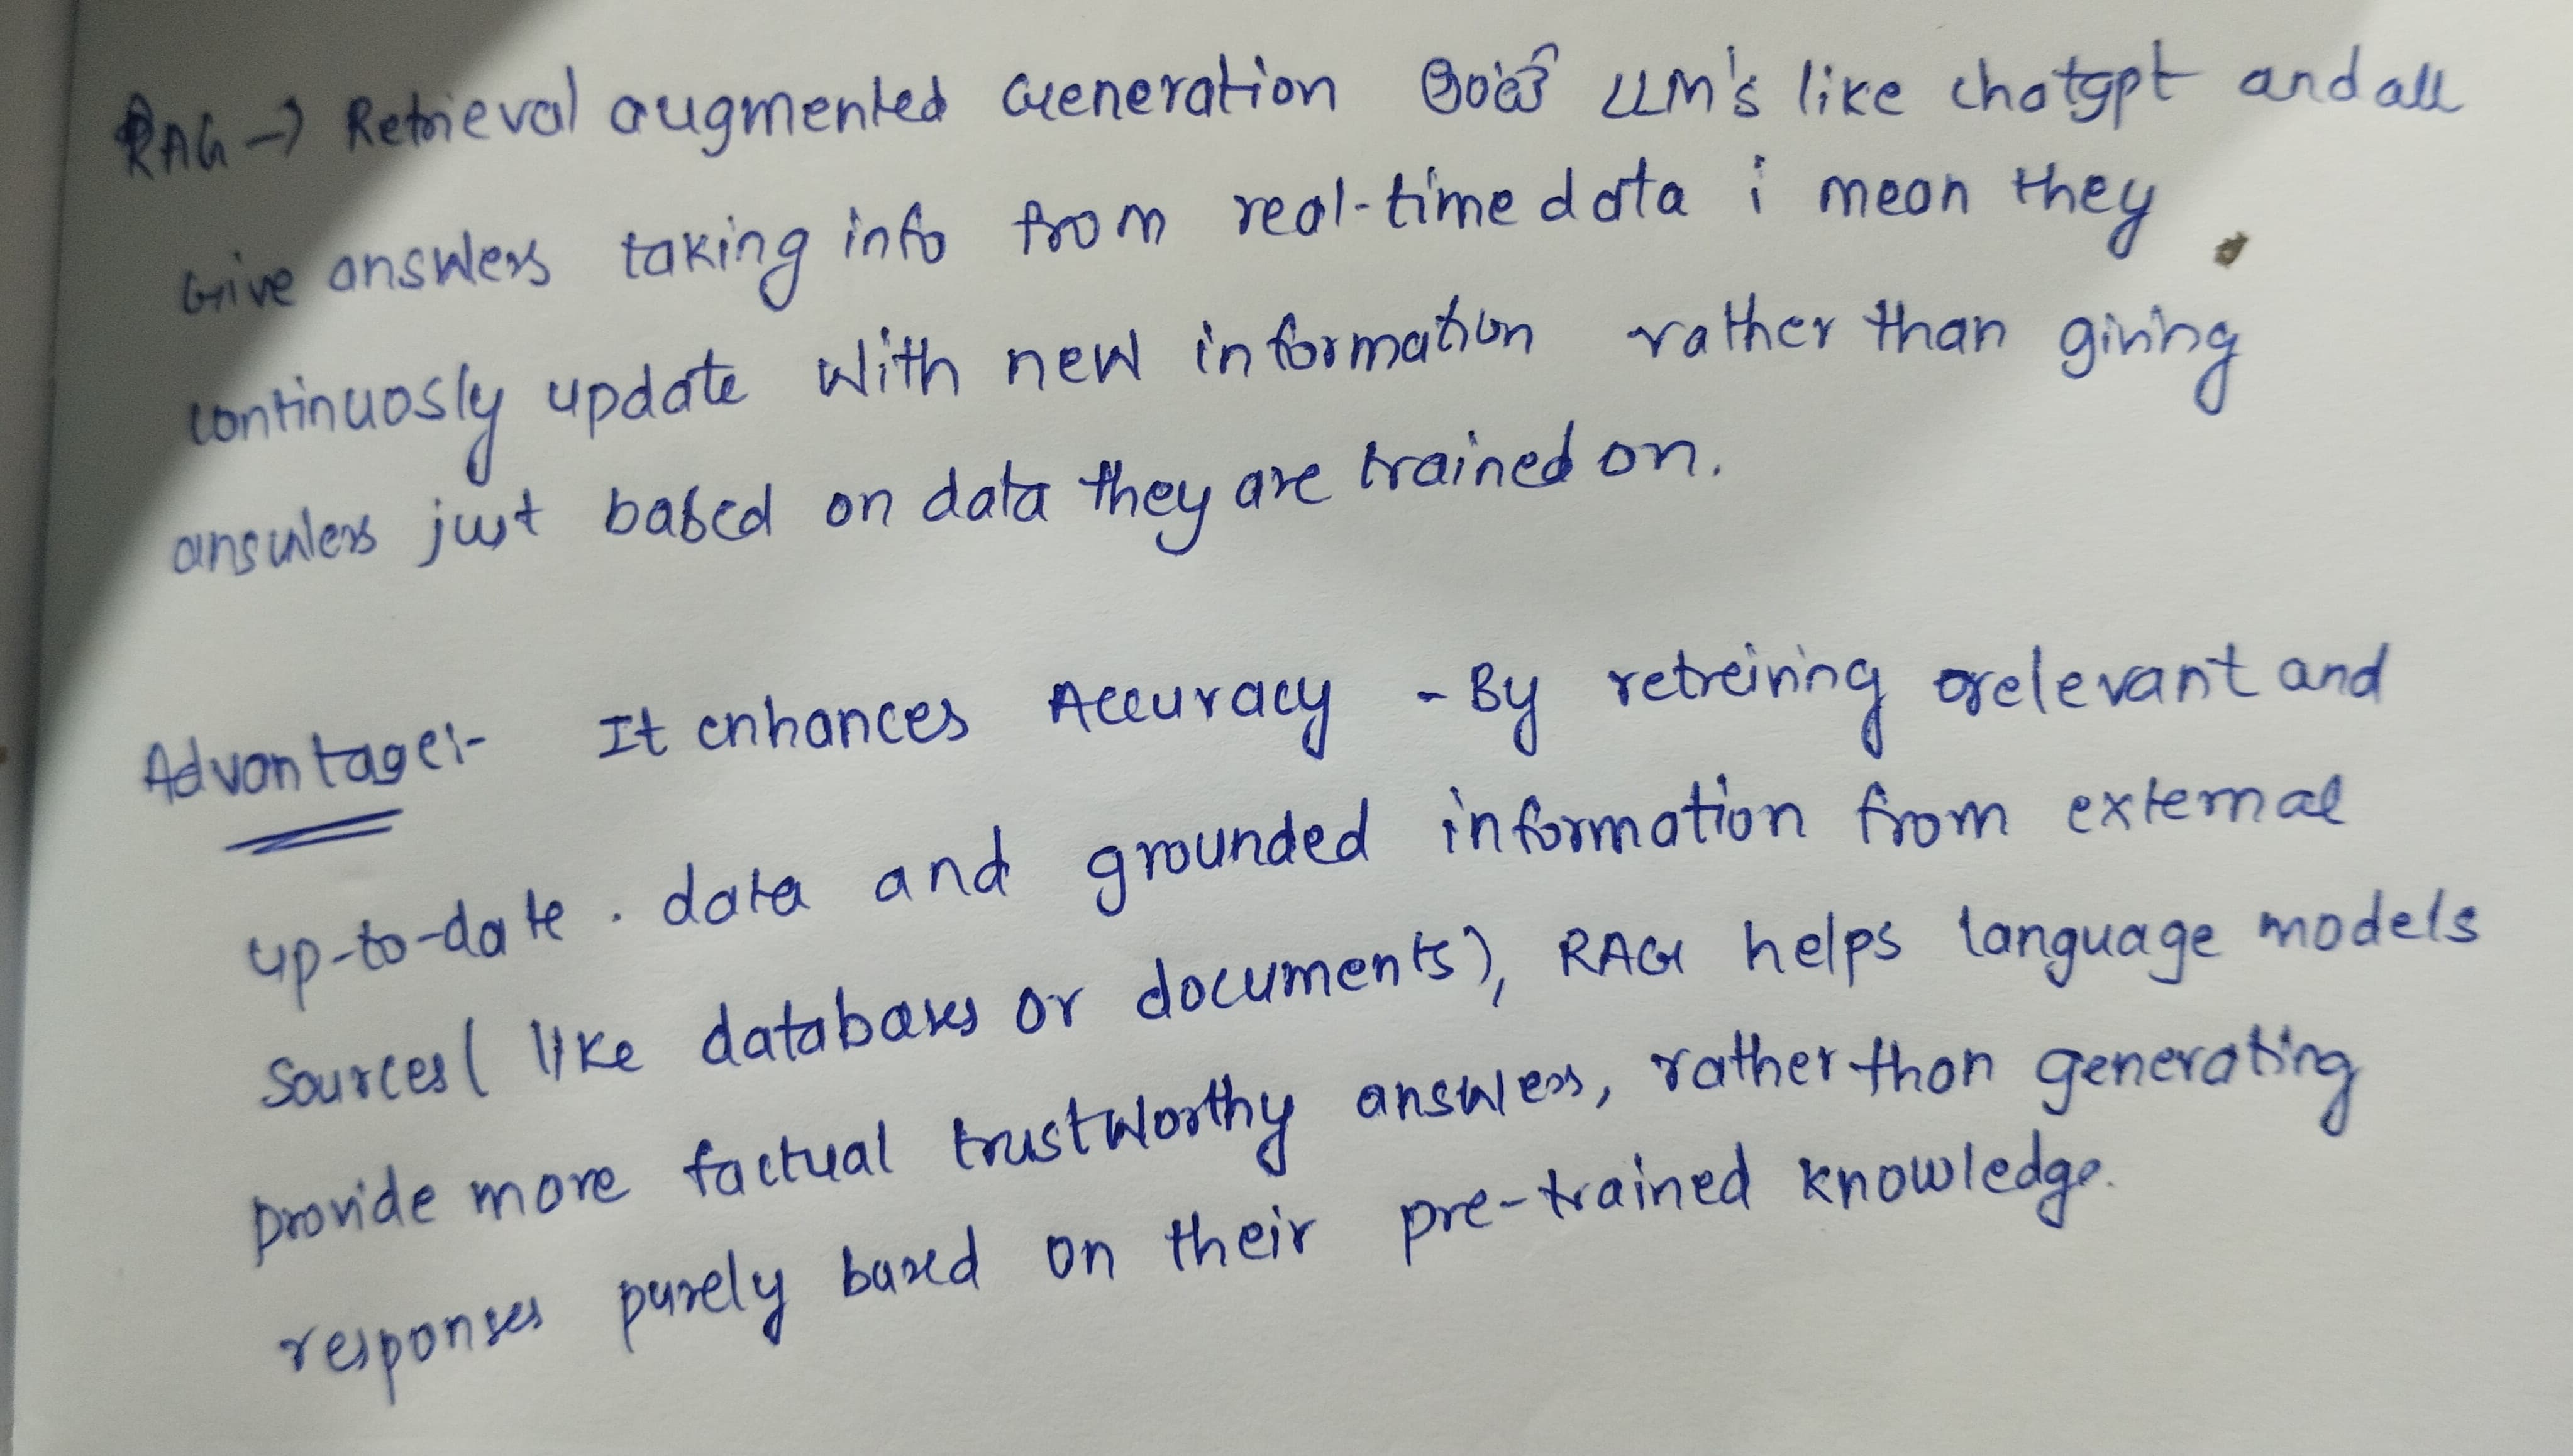 RAG → Retrieval augmented Generation అంటే LLM's like chatgpt and all
Give answers taking info from real-time data i mean they
continuosly update with new information rather than giving
answers just based on data they are trained on.
Advantage:- It enhances Accuracy - By retreiving relevant and
up-to-date . data and grounded information from external
sources( like databases or documents), RAG helps language models
provide more factual trustworthy answers, rather than generating
responses purely based on their pre-trained knowledge.